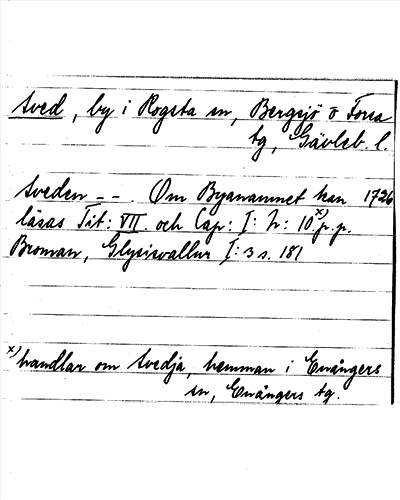 Sved, by i Rogsta sn, Bergsjö o Forsa
tg, Gävleb. l.
Sveden - - . Om Byanamnet kan 1726
läsas Tit: VII. och Cap: I: h: 10 x) p. p.
Broman, Glysisvallur I: 3 s. 181
x) handlar om Svedja, hemman i Enångers
sn, Enångers tg.